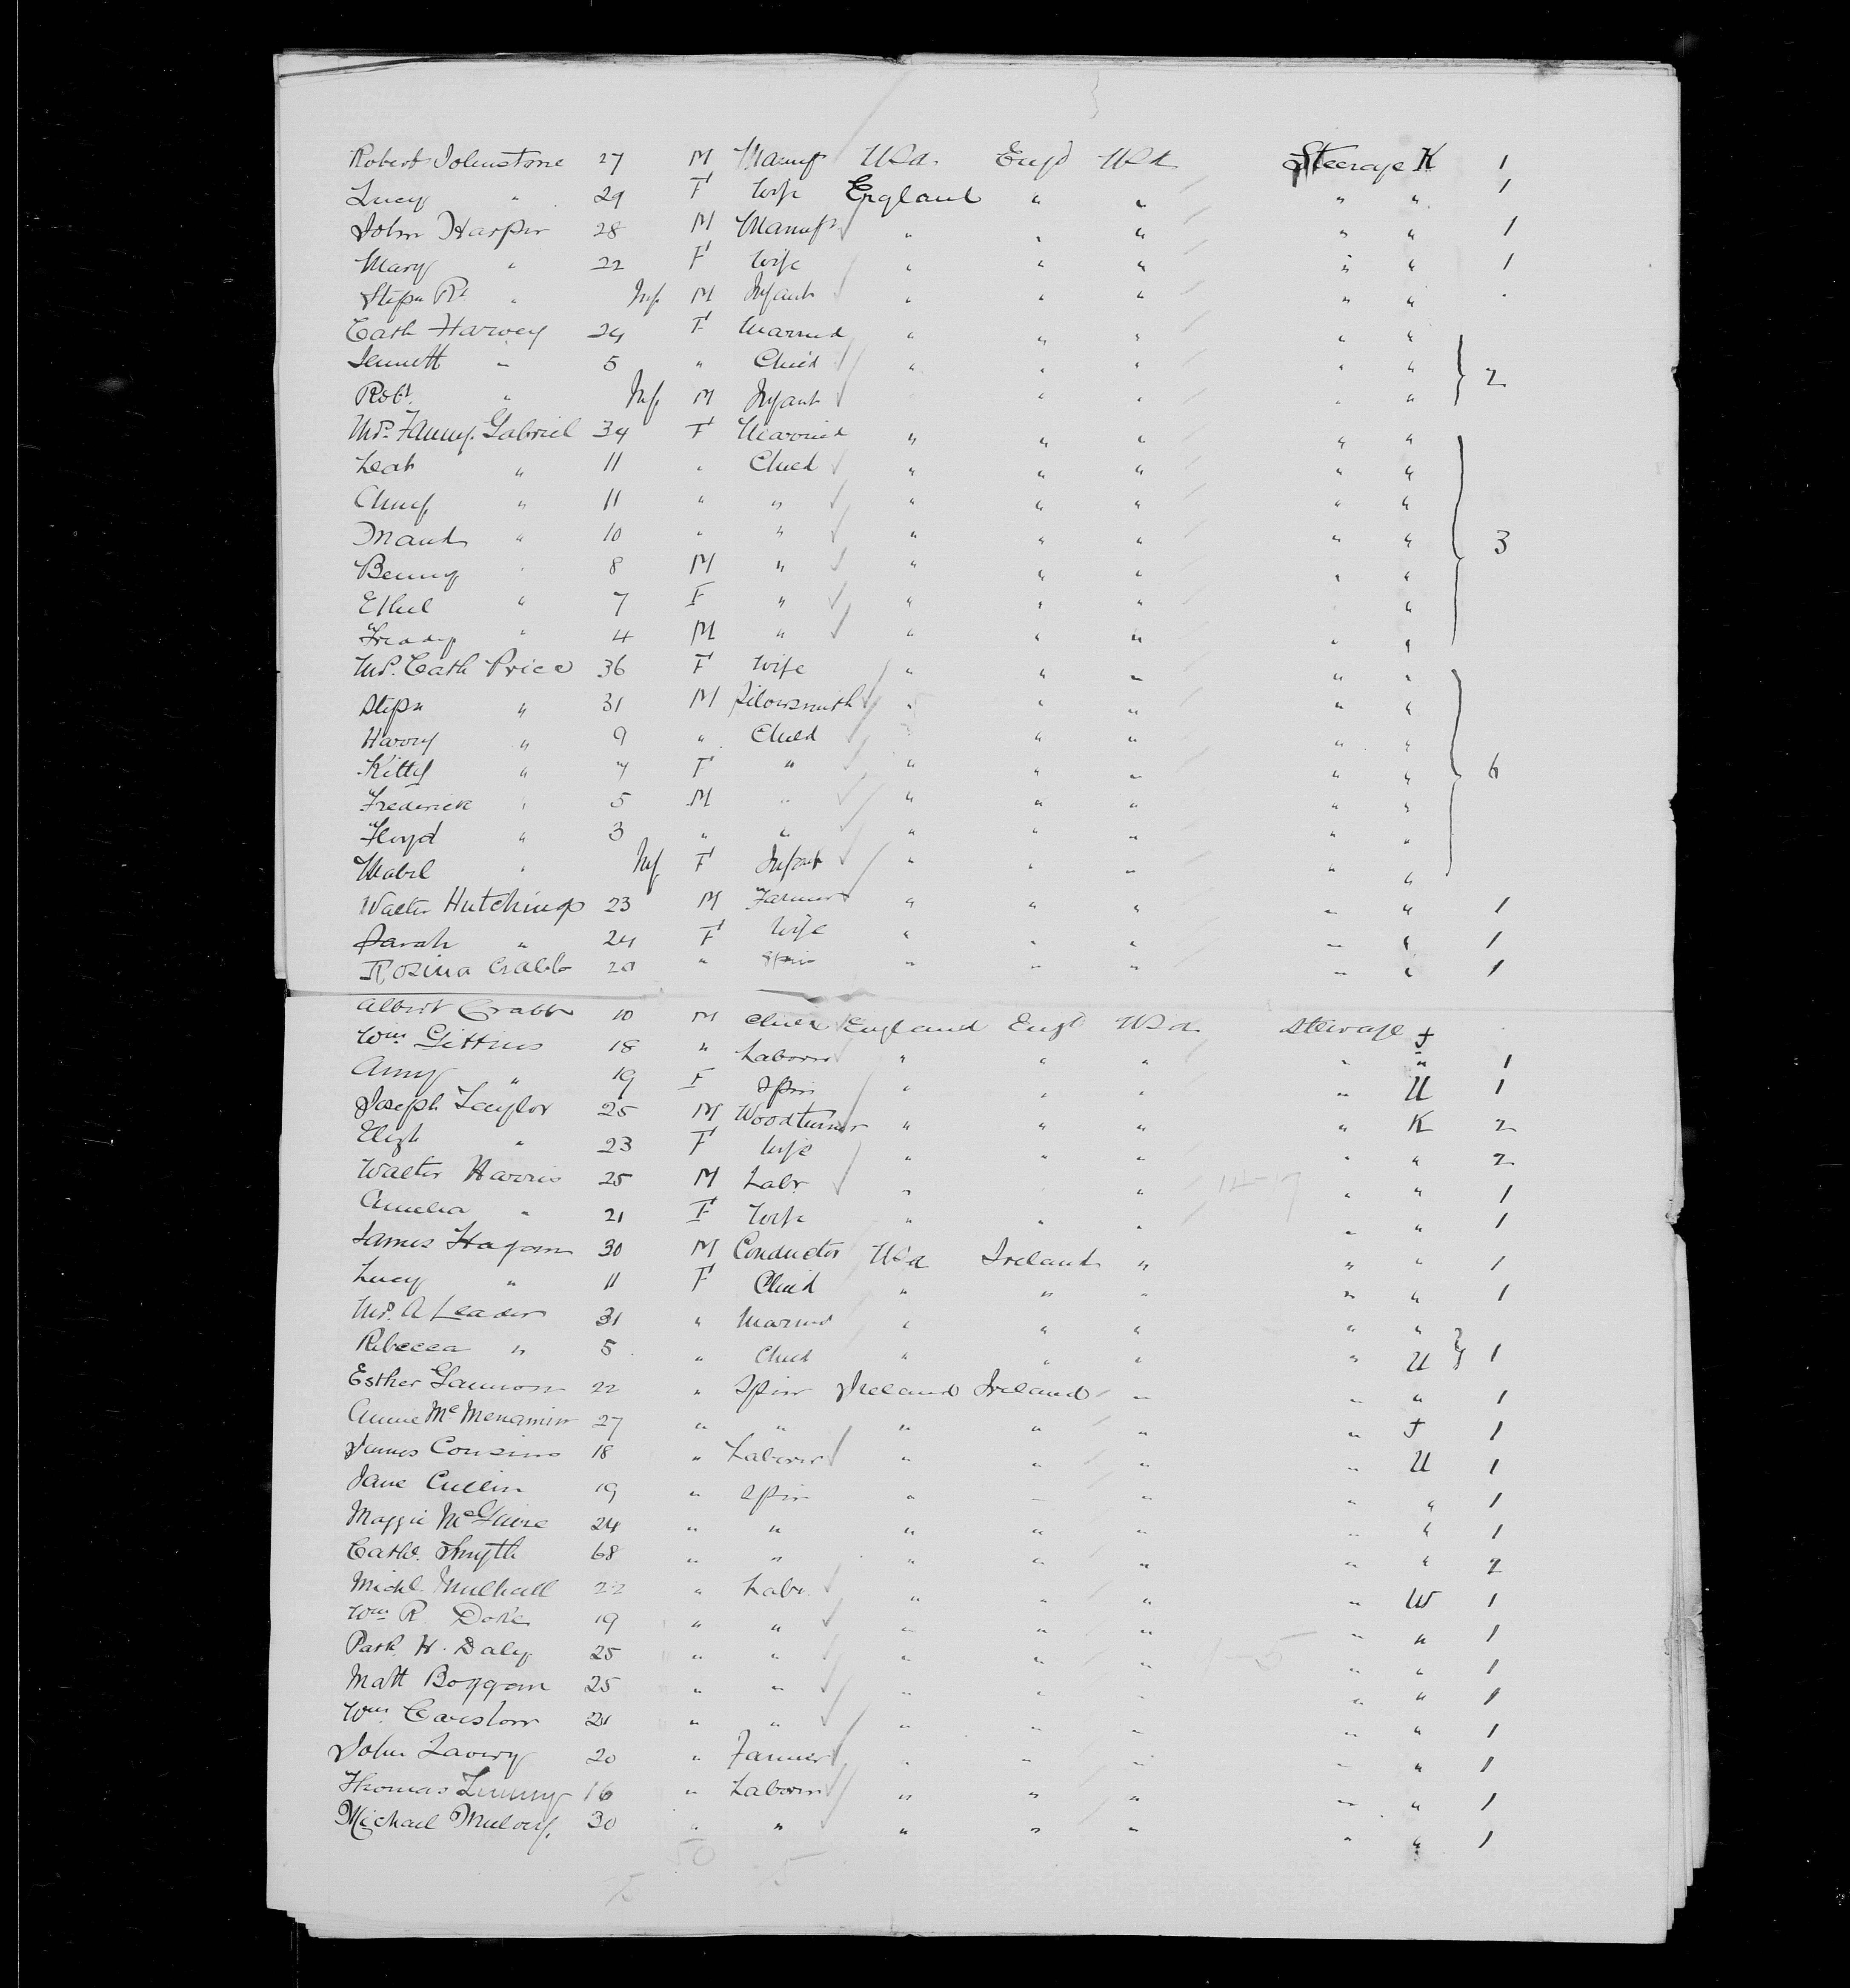 Robert Johnstone 27 M Manuf USA Engd USA Steerage K 1
Lucy " 29 F Wife England " " " " 1
John Harper 28 M Manufr " " " " " 1
Mary " 22 F Wife " " " " " 1
Stepn Rt " Inf M Infant " " " " "
Cath Harvey 24 F Married " " " " "
Jennett " 5 " Child " " " " " 2
Robt. " Inf. M Infant " " " "
Mrs. Fanny Gabriel 34 F Married " " " " "
Leah " 11 " Child " " " " "
" 11 " " " " " " "
Maud " 10 " " " " " " " 3
Benny " 8 M " " " " " "
Ethel " 7 F " " " " "
Freddy " 4 M " " " " " "
Mrs. Cath Price 36 F Wife " " " " "
Stepn " 31 M Silversmith " " " " "
Harry " 9 " Child " " " "
Kitty " 7 F " " " " " " 6
Frederick " 5 M " " " " " "
Floyd " 3 " " " " " " "
Mabel " Inf F Infant " " " " "
Walter Hutchings 23 M Farmer " " " " " 1
Sarah " 24 F Wife " " " " " 1
Rosina Crabb 20 " Spin " " " " " 1
Albert Crabb 10 M Child England Engd USA Steerage J
Wm Gittins 18 " Laborer " " " " " 1
Amy " 19 F Spin " " " " U 1
Joseph Taylor 25 M Woodturner " " " " K 2
Elizh " 23 F Wife " " " " " 2
Walter Harris 25 M Labr. " " 14-17 " " 1
Amelia " 21 F Wife " " " " " 1
James Hagan 30 M Conductor USA Ireland " " " 1
Lucy " 11 F Child " " " " " 1
Mrs. A Leader 31 " Married " " " " "
Rebecca " 5 " Child " " " " U 1
Esther Gannon 22 " Spin Ireland Ireland " " " 1
Annie McMenamin 27 " " " " " " J 1
James Cousins 18 " Laborer " " " " U 1
Jane Cullen 19 " Spin " " " " " 1
Maggie McGuire 24 " " " " " " " 1
Cathe. Smyth 68 " " " " " " " 2
Michl. Mulhall 22 " Labr. " " " " W 1
Wm R 19 " " " " " " " 1
Patk. H. Daly 25 " " " " " 4-5 " " 1
Matt Boggan 25 " " " " " " " 1
Wm. 21 " " " " " " " 1
John Lavery 20 " Farmer " " " " " 1
Thomas 16 " Laborer " " " " " 1
Michael 30 " " " " " " " 1
50
5